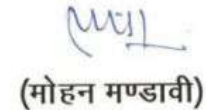 (मोहन मण्डावी)